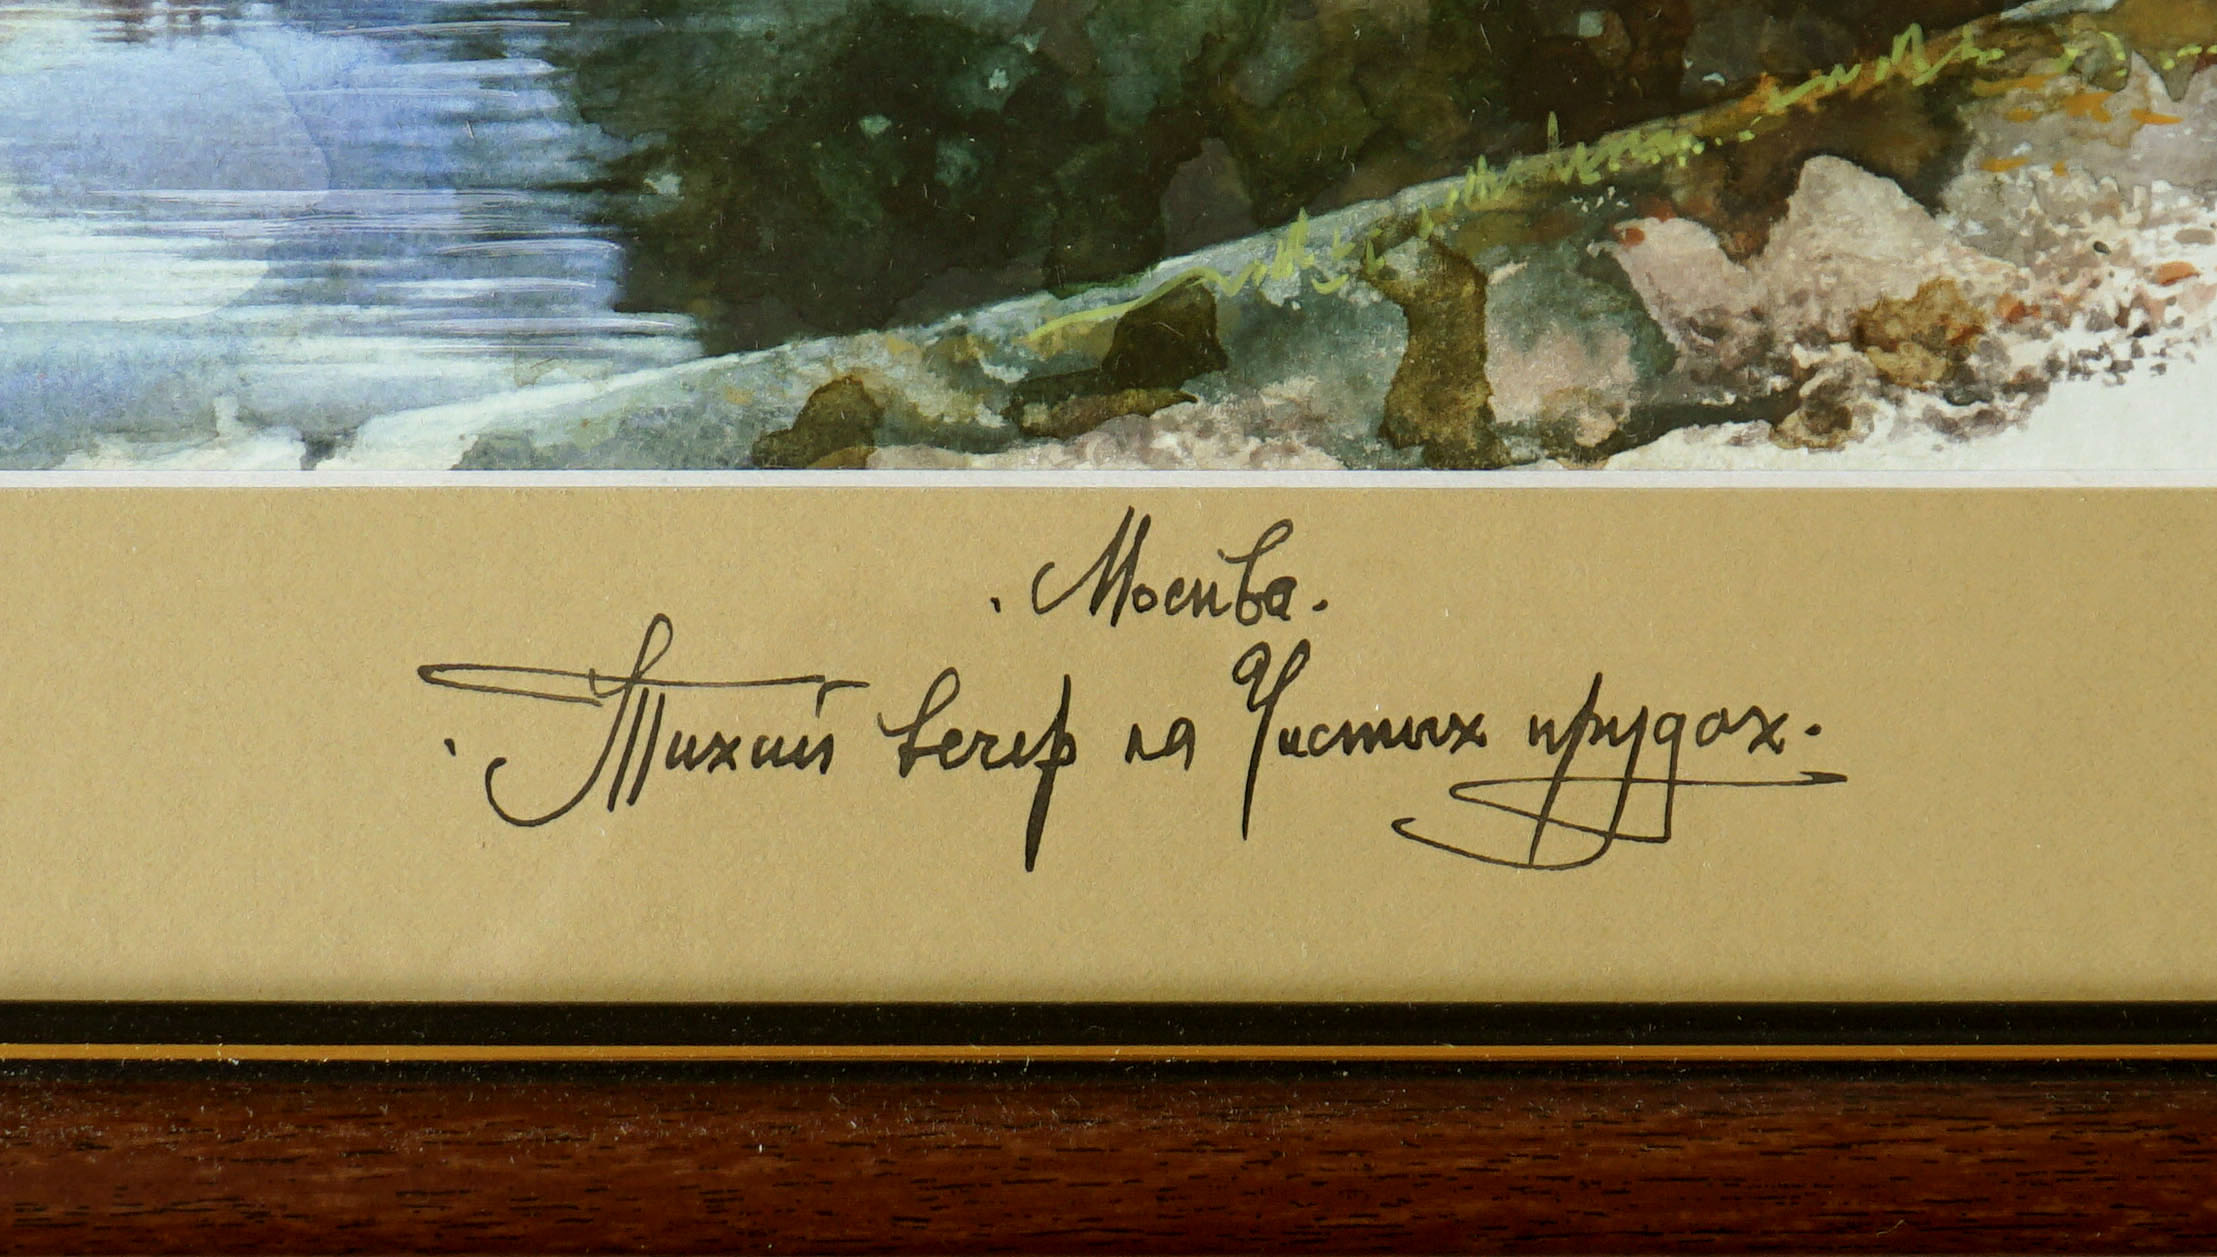 . Москва.
. Тихий вечер на Чистых прудах.